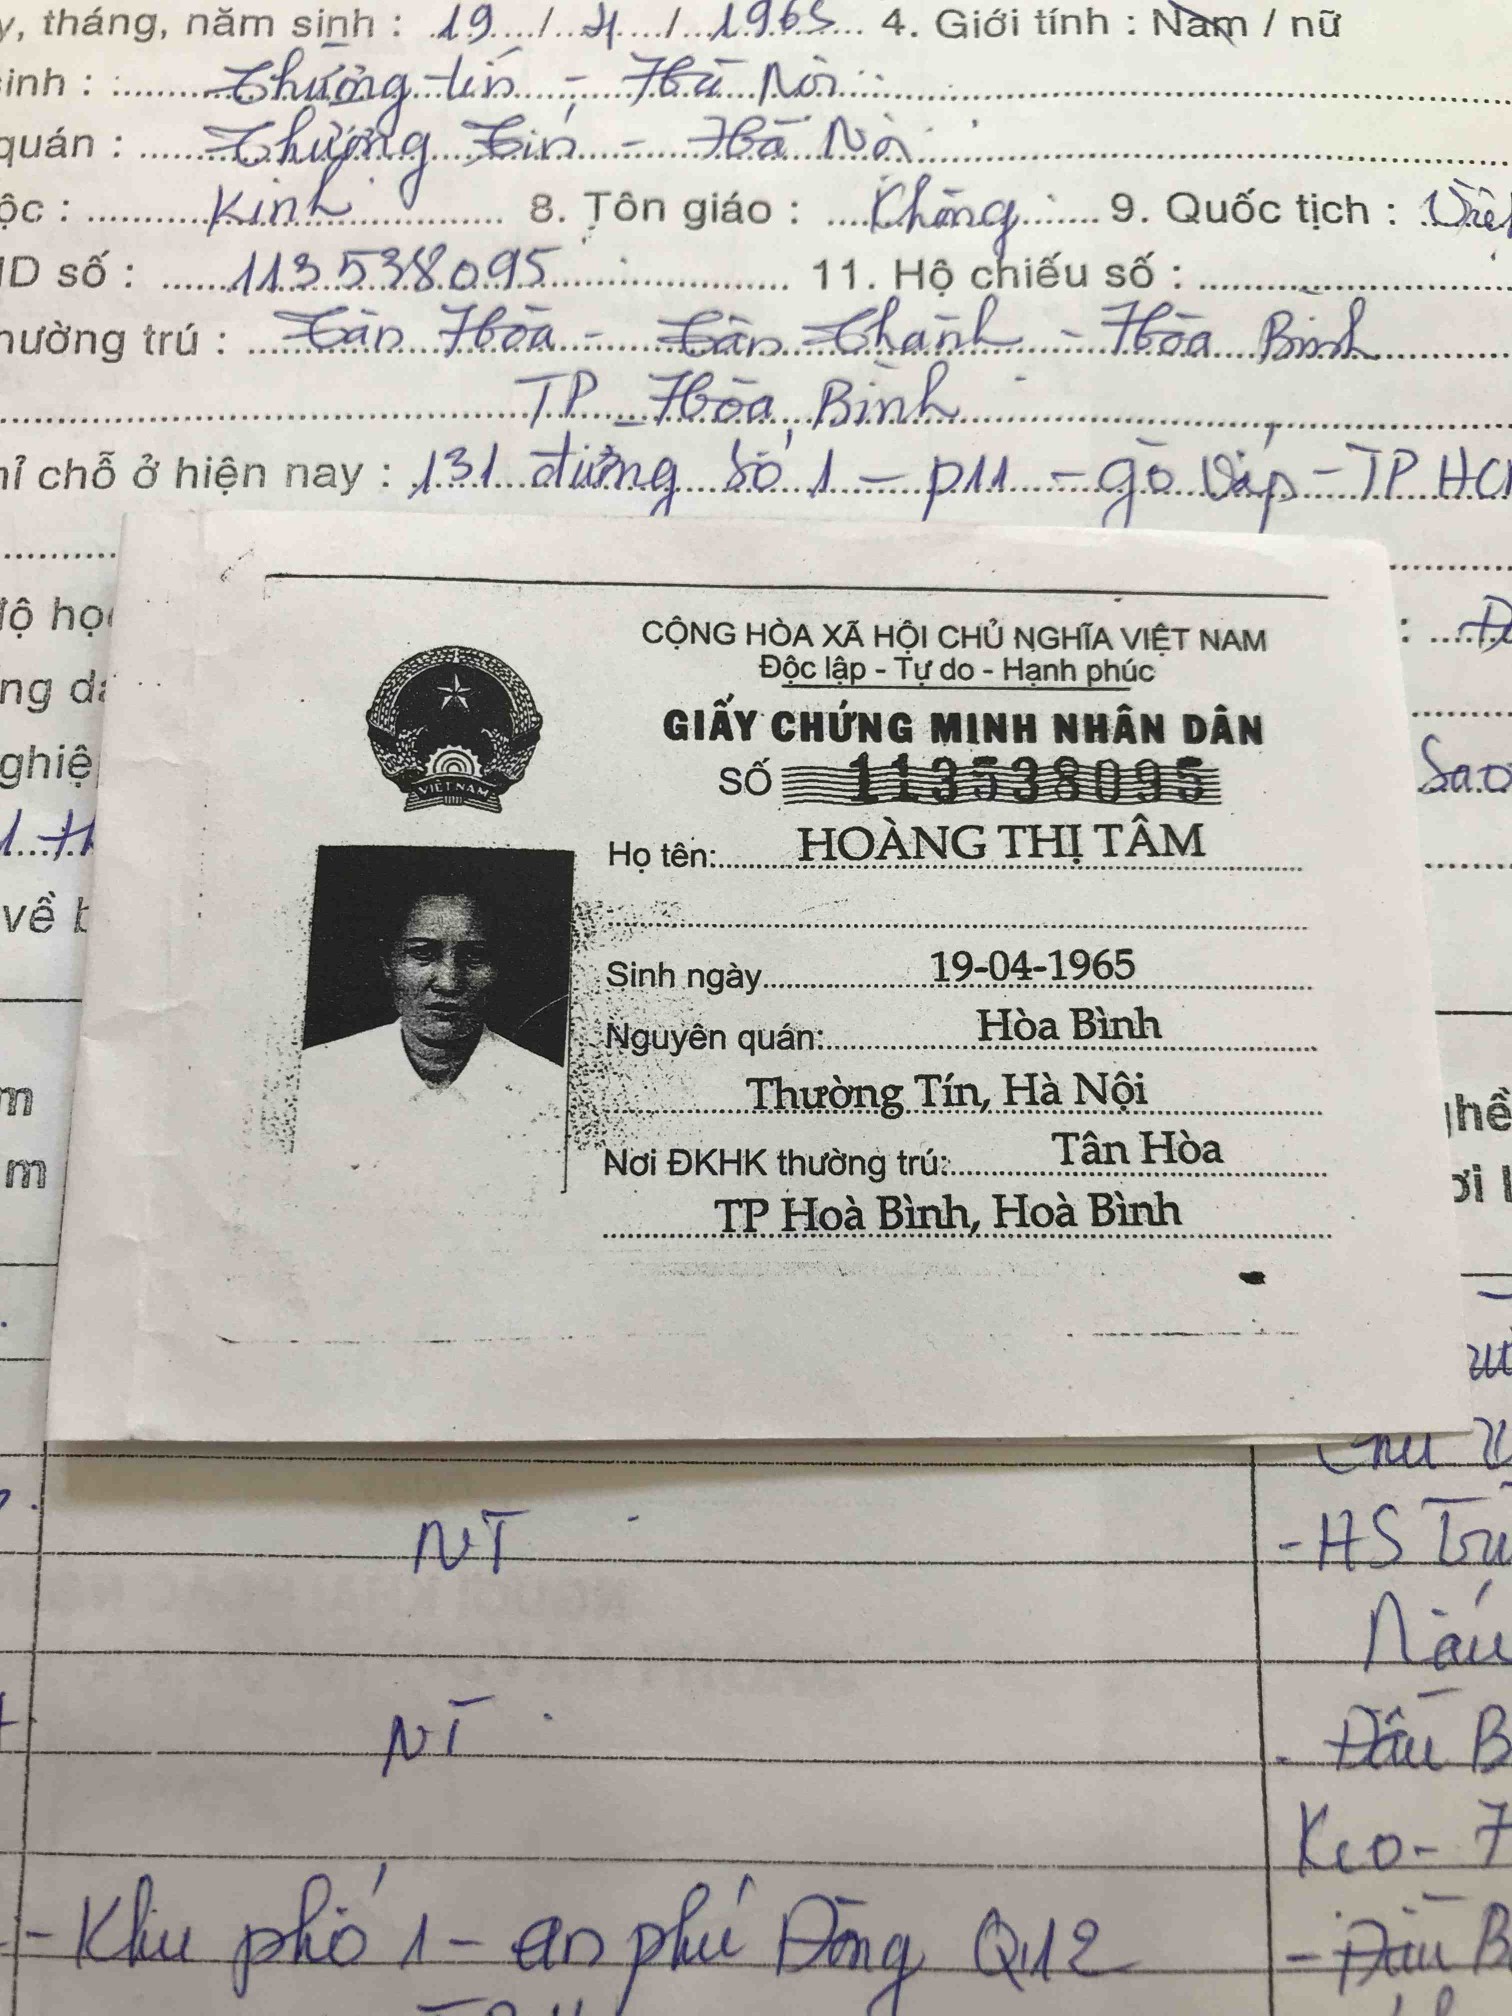 y, tháng, năm sinh : 19 / 4 / 1965 4. Giới tính : Nam / nữ
sinh : Thường tín - Hà Nội
quán : Thường Tín - Hà Nội
ộc : Kinh 8. Tôn giáo : Không 9. Quốc tịch : Việt
ID số : 113538095 11. Hộ chiếu số :
hường trú : Tân Hòa - Tân Thành - Hòa Bình
TP Hòa Bình
hỉ chỗ ở hiện nay : 131 đường Số 1 - p11 - gò Vấp - TP HCM
độ học
ng dâ
ghiệ
Sao
1 th
về b
CỘNG HÒA XÃ HỘI CHỦ NGHĨA VIỆT NAM
Độc lập - Tự do - Hạnh phúc
GIẤY CHỨNG MINH NHÂN DÂN
SỐ 113538095
VIỆT NAM
Họ tên: HOÀNG THỊ TÂM
Sinh ngày 19-04-1965
Nguyên quán: Hòa Bình
Thường Tín, Hà Nội
Nơi ĐKHK thường trú: Tân Hòa
TP Hoà Bình, Hoà Bình
m
ghề
m
ơi l
NT
- HS Trư
Nấu
NT
- Đầu B
Keo - 7
- Khu phố 1 - an phú Đông Q12
- Đầu B